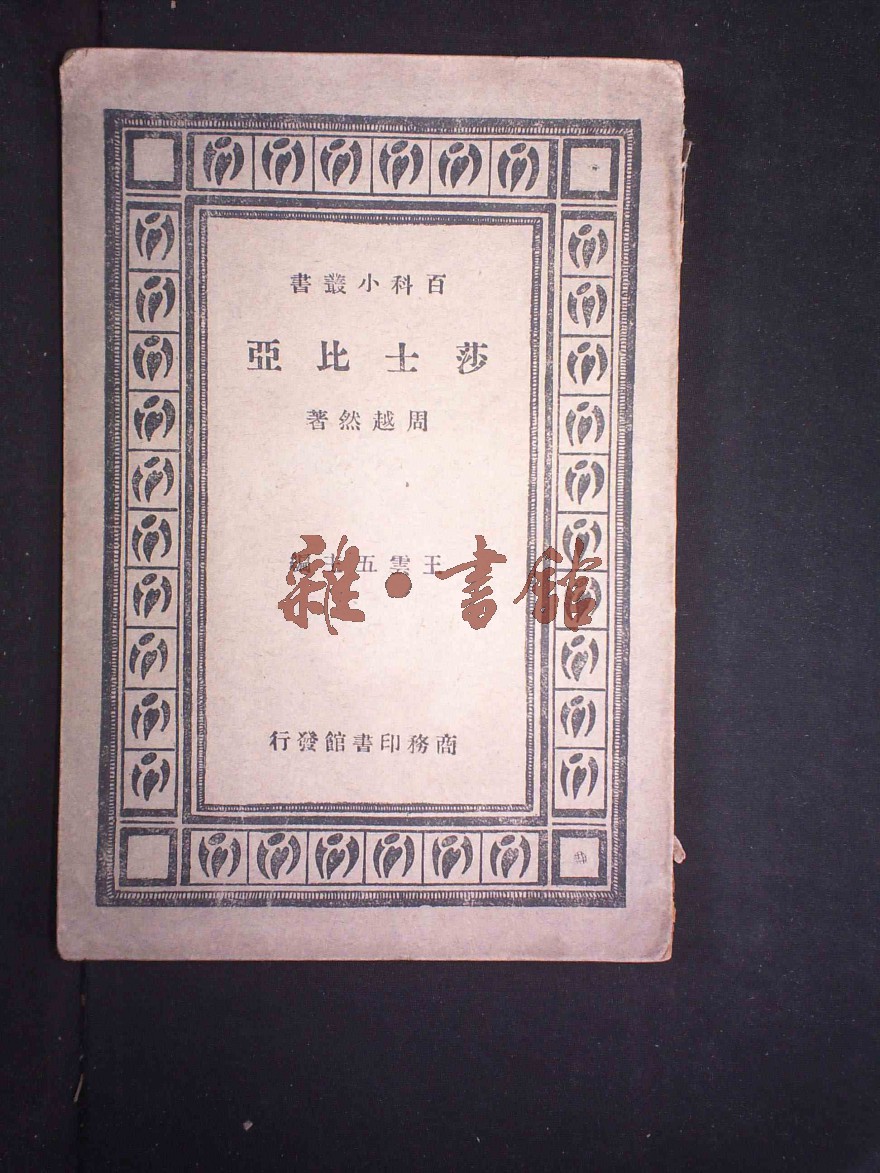 百科小叢書
莎士比亞
周越然著
王雲五主編
雜•書館
商務印書館發行